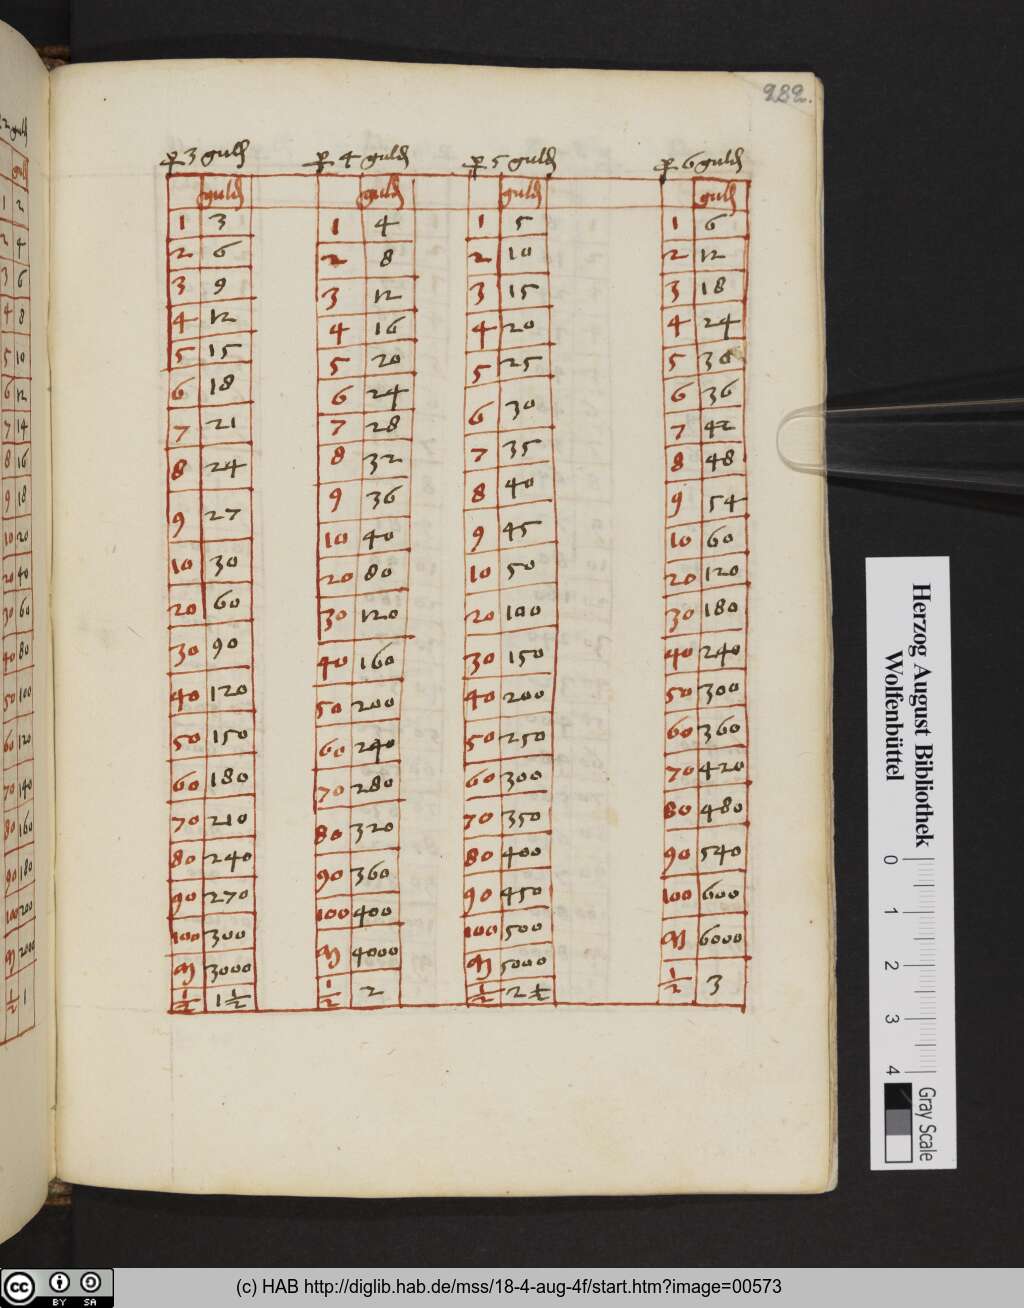 282.
ꝑ 3 guld ꝑ 4 guld ꝑ 5 guld ꝑ 6 guld
guld guld guld guld
1 3 1 4 1 5 1 6
2 6 2 8 2 10 2 12
3 9 3 12 3 15 3 18
4 12 4 16 4 20 4 24
5 15 5 20 5 25 5 30
6 18 6 24 6 30 6 36
7 21 7 28 7 35 7 42
8 24 8 32 8 40 8 48
9 27 9 36 9 45 9 54
10 30 10 40 10 50 10 60
20 60 20 80 20 100 20 120
30 90 30 120 30 150 30 180
40 120 40 160 40 200 40 240
50 150 50 200 50 250 50 300
60 180 60 240 60 300 60 360
70 210 70 280 70 350 70 420
80 240 80 320 80 400 80 480
90 270 90 360 90 450 90 540
100 300 100 400 100 500 100 600
M 3000 M 4000 M 5000 M 6000
1/2 1 1/2 1/2 2 1/2 2 1/2 1/2 3
2 guld
guld
1 2
2 4
3 6
4 8
5 10
6 12
7 14
8 16
9 18
10 20
20 40
30 60
40 80
50 100
60 120
70 140
80 160
90 180
100 200
M 2000
1/2 1
Herzog August Bibliothek
Wolfenbüttel
0 1 2 3 4
Gray Scale
cc BY SA
(c) HAB http://diglib.hab.de/mss/18-4-aug-4f/start.htm?image=00573